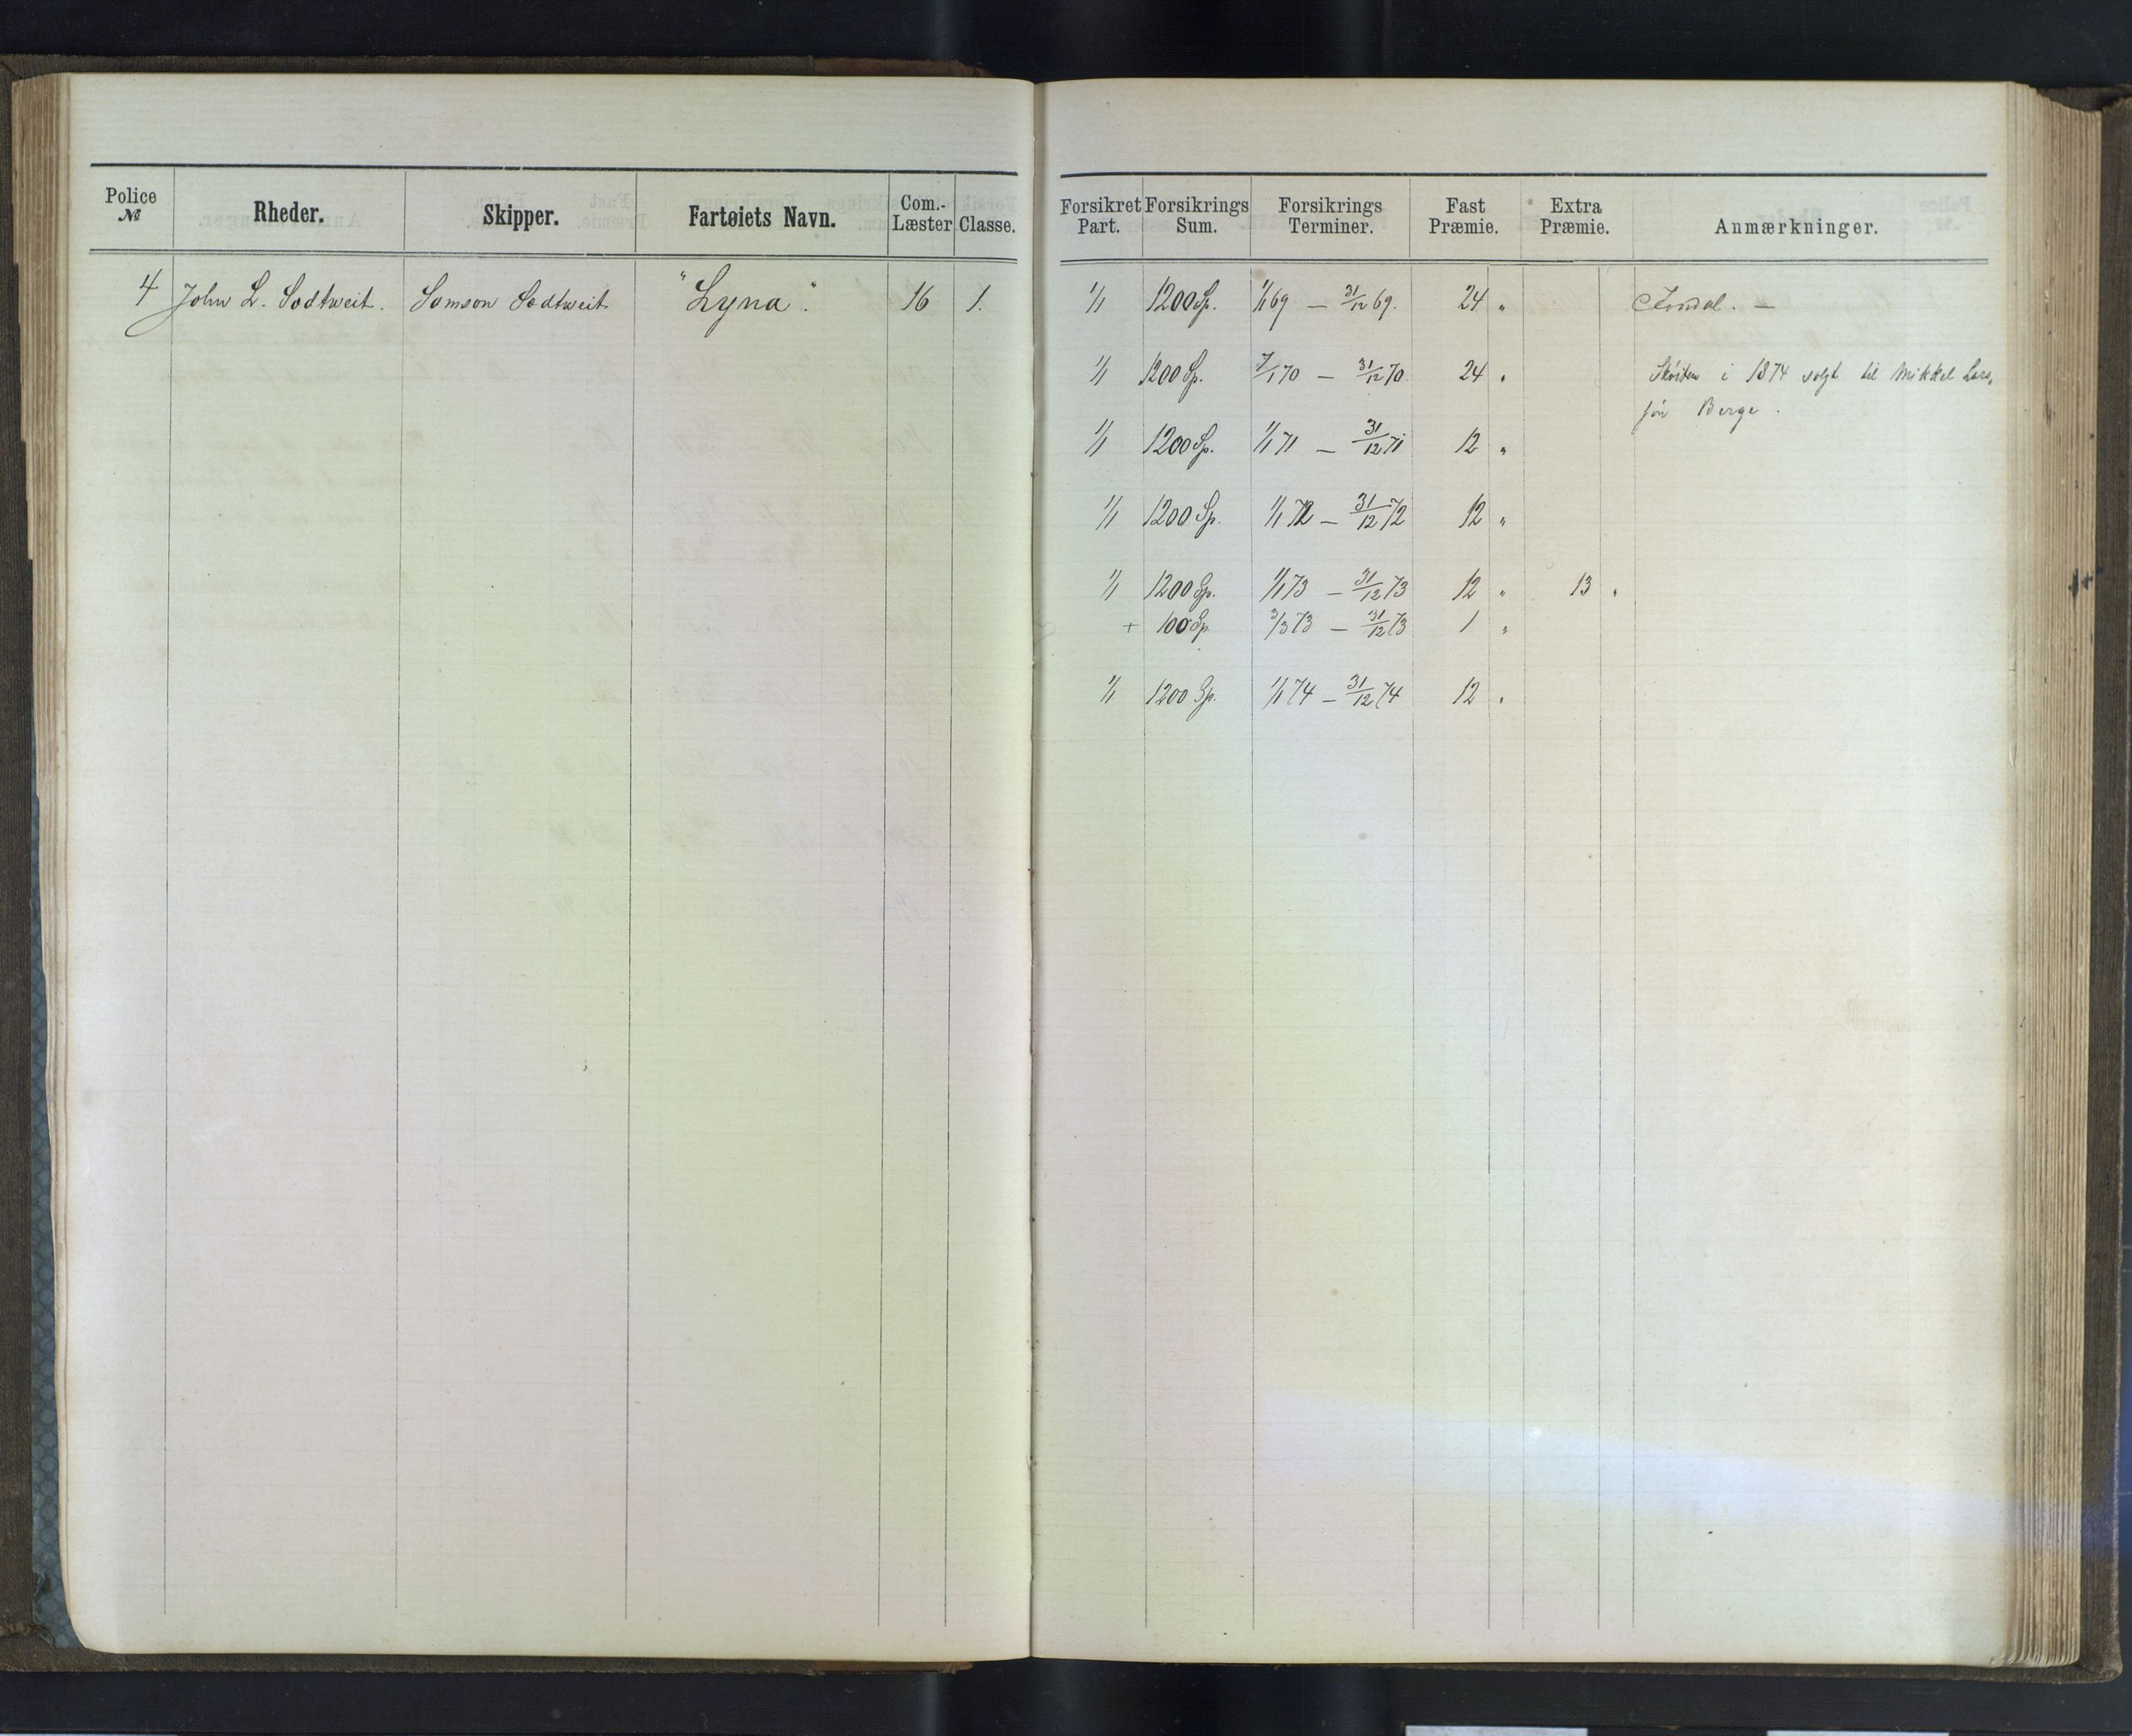 Police № Rheder. Skipper. Fartøiets Navn. Com.-Læster Classe. Forsikret Part. Forsikrings Sum. Forsikrings Terminer. Fast Præmie. Extra Præmie. Anmærkninger.
4 John L. Sodtweit. Samson Sodtweit "Lyna". 16 1. 1/1 1200 Sp. 1/1 69 — 31/12 69. 24 "
1/1 1200 Sp. 7/1 70 — 31/12 70. 24 " Skøiten i 1874 solgt til Mikkel Lars-
søn Berge.
1/1 1200 Sp. 1/1 71 — 31/12 71 12 "
1/1 1200 Sp. 1/1 72 — 31/12 72 12 "
1/1 1200 Sp. 1/1 73 — 31/12 73 12 " 13 "
+ 100 Sp. 3/3 73 — 31/12 73 1 "
1/1 1200 Sp. 1/1 74 — 31/12 74 12 "